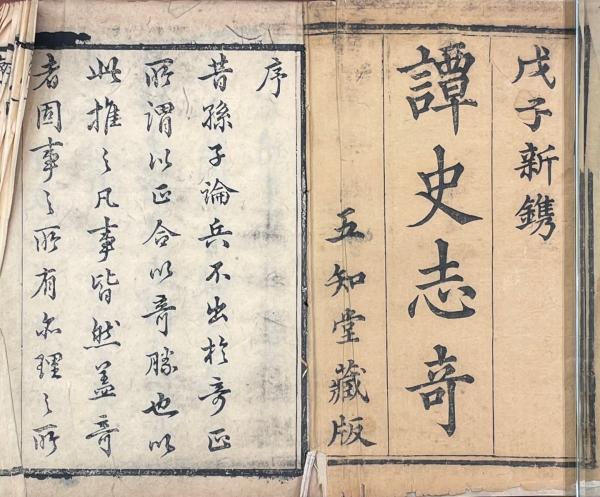 戊子新鐫
譚史志奇
五知堂藏版
序
昔孫子論兵不出於奇正
所謂以正合以奇勝也以
此推之凡事皆然蓋奇
者固事之所有亦理之所